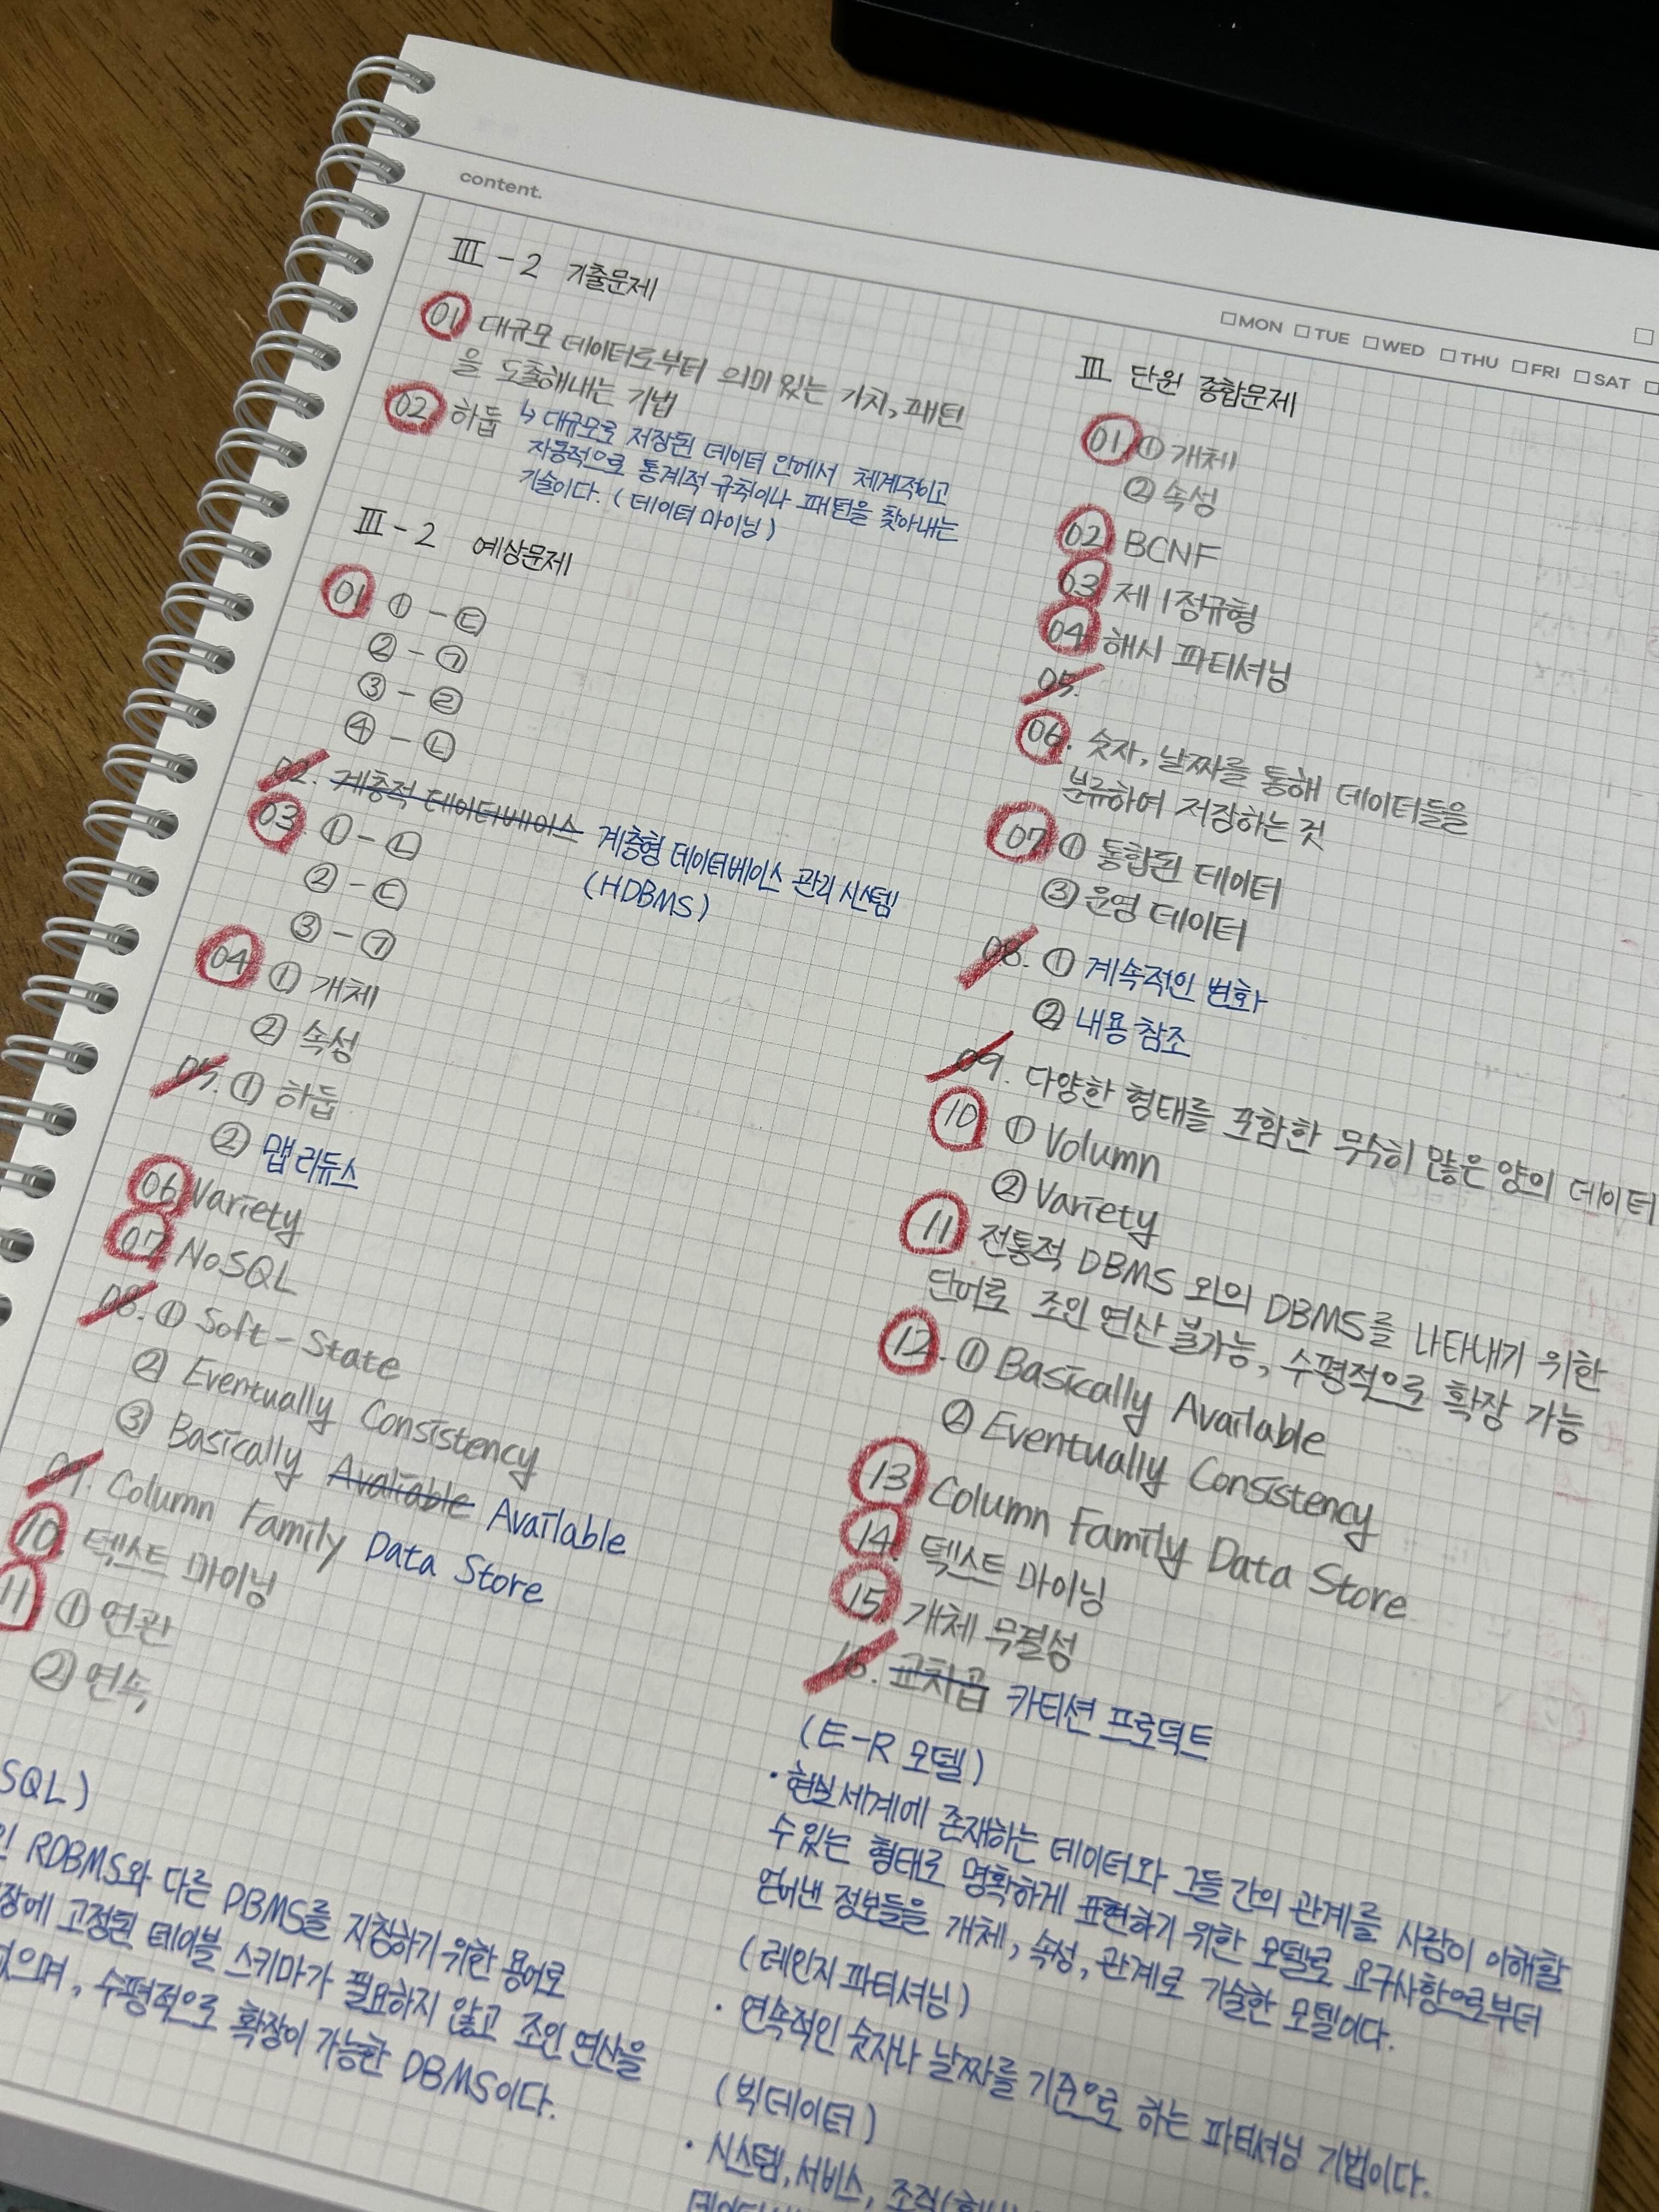 content.
□MON □TUE □WED □THU □FRI □SAT □
Ⅲ - 2 기출문제
01 대규모 데이터로부터 의미 있는 가치, 패턴
을 도출해내는 기법
02. 하둡 ↳ 대규모로 저장된 데이터 안에서 체계적이고
자동적으로 통계적 규칙이나 패턴을 찾아내는
기술이다. (데이터 마이닝)
Ⅲ - 2 예상문제
01 ① - ㉢
② - ㉠
③ - ㉣
④ - ㉡
02. 계층적 데이터베이스 계층형 데이터베이스 관리 시스템
(HDBMS)
03 ① - ㉡
② - ㉢
③ - ㉠
04 ① 개체
② 속성
05. ① 하둡
② 맵 리듀스
06 Variety
07. NoSQL
08. ① Soft-State
② Eventually Consistency
③ Basically Avaliable Available
09. Column Family Data Store
10. 텍스트 마이닝
11 ① 연관
② 연속
SQL)
인 RDBMS와 다른 DBMS를 지칭하기 위한 용어로
장에 고정된 테이블 스키마가 필요하지 않고 조인 연산을
없으며, 수평적으로 확장이 가능한 DBMS이다.
Ⅲ 단원 종합문제
01. ① 개체
② 속성
02. BCNF
03. 제1정규형
04. 해시 파티셔닝
05.
06. 숫자, 날짜를 통해 데이터들을
분류하여 저장하는 것
07. ① 통합된 데이터
③ 운영 데이터
08. ① 계속적인 변화
② 내용 참조
09. 다양한 형태를 포함한 무수히 많은 양의 데이터
10 ① Volumn
② Variety
11 전통적 DBMS 외의 DBMS를 나타내기 위한
단어로 조인 연산 불가능, 수평적으로 확장 가능
12. ① Basically Available
② Eventually Consistency
13 Column Family Data Store
14. 텍스트 마이닝
15. 개체 무결성
16. 교차곱 카티션 프로덕트
(E-R 모델)
· 현실세계에 존재하는 데이터와 그들 간의 관계를 사람이 이해할
수 있는 형태로 명확하게 표현하기 위한 모델로 요구사항으로부터
얻어낸 정보들을 개체, 속성, 관계로 기술한 모델이다.
(레인지 파티셔닝)
· 연속적인 숫자나 날짜를 기준으로 하는 파티셔닝 기법이다.
(빅데이터)
· 시스템, 서비스, 조직(회사)